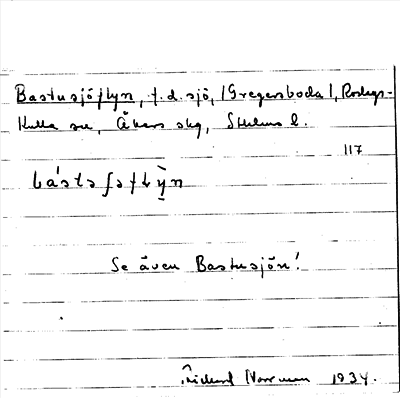 Bastusjöflyn, f.d. sjö, (Gregersboda), Roslags-
Kulla sn, Åkers skg, Sthlms l.
117
Se även Bastusjön!
Norrman 1934.